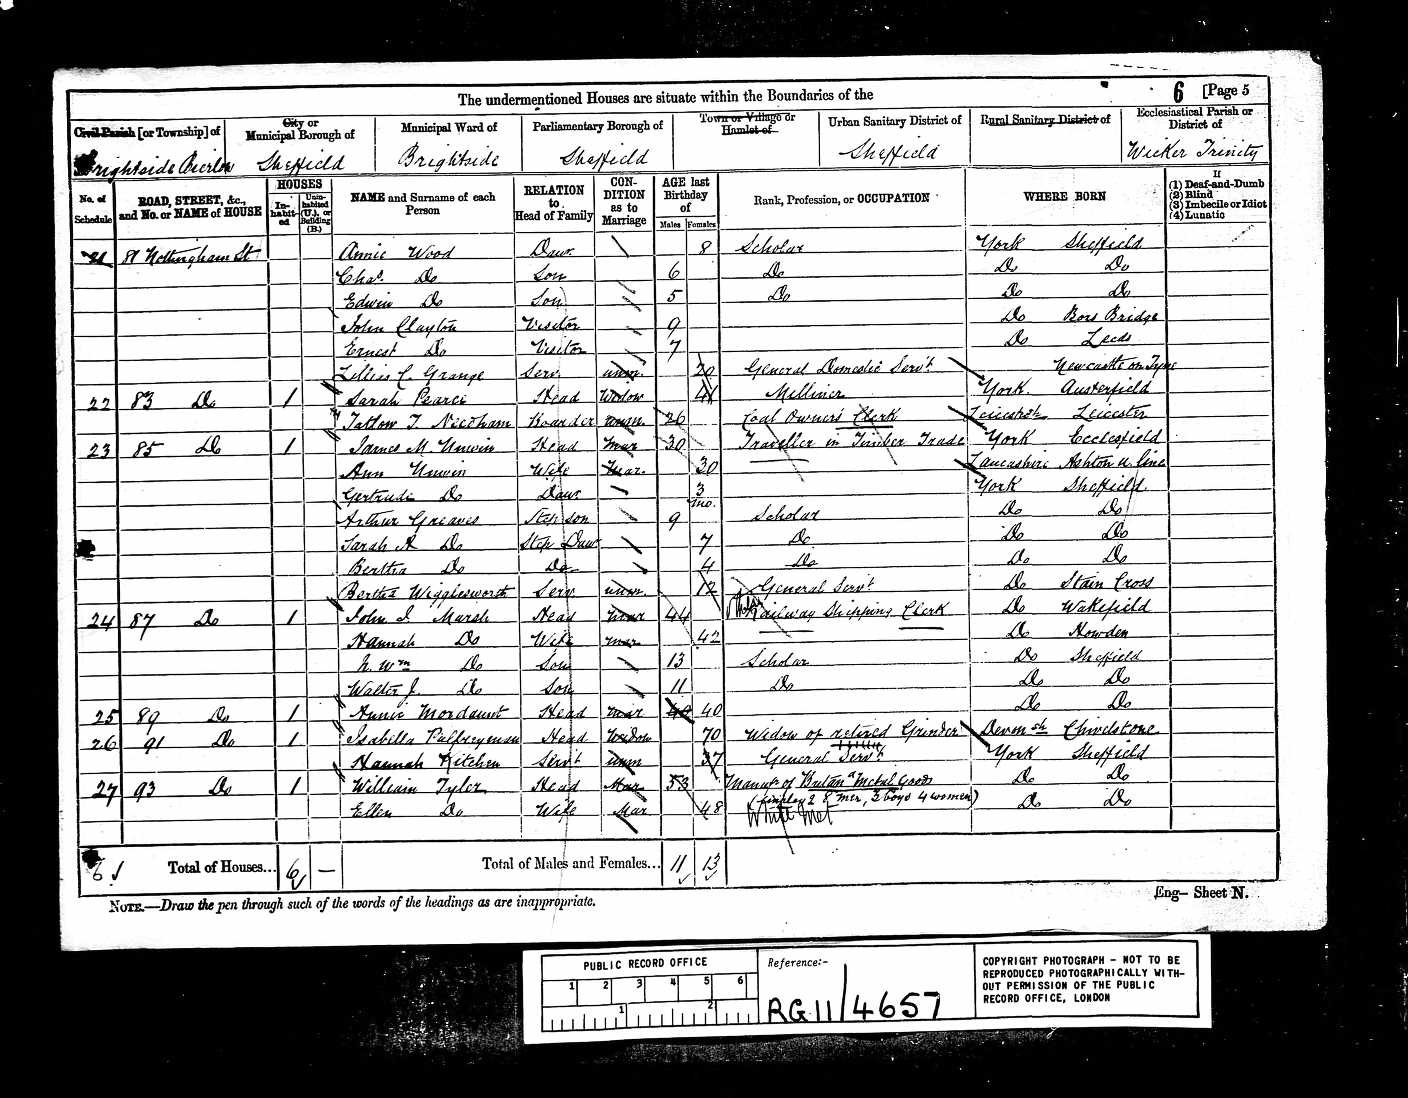 The undermentioned Houses are situate within the Boundaries of the
6 [Page 5
Civil Parish [or Township] of
City or Municipal Borough of
Municipal Ward of
Parliamentary Borough of
Town or Village or Hamlet of
Urban Sanitary District of
Rural Sanitary District of
Ecclesiastical Parish or District of
Brightside Bierlow Sheffield Brightside Sheffield Sheffield Wicker Trinity
No. of Schedule
ROAD, STREET, &c., and No. or NAME of HOUSE
HOUSES
In-habit-ed
Unin-habited (U.), or Building (B.)
NAME and Surname of each Person
RELATION to Head of Family
CON-DITION as to Marriage
AGE last Birthday of
Males Females
Rank, Profession, or OCCUPATION
WHERE BORN
If
(1) Deaf-and-Dumb
(2) Blind
(3) Imbecile or Idiot
(4) Lunatic
21 81 Nottingham St Annie Wood Daur 8 Scholar York Sheffield
Chas. Do Son 6 Do Do Do
Edwin Do Son 5 Do Do Do
John Clayton Visitor 9 Do Boro Bridge
Ernest Do Visitor 7 Do Leeds
Lillias C. Grange Serv. unm. 20 General Domestic Servt Newcastle on Tyne
22 83 Do 1 Sarah Pearce Head Widow 41 Milliner York Austerfield
Tatlow T. Needham Boarder unm. 26 Coal Owner's Clerk Leicestsh Leicester
23 85 Do 1 James M. Unwin Head Mar 30 Traveller in Timber Trade York Ecclesfield
Ann Unwin Wife Mar. 30 Lancashire Ashton u. line
Gertrude Do Daur 3 mo. York Sheffield
Arthur Greaves Step son 9 Scholar Do Do
Sarah A Do Step Daur 7 Do Do Do
Bertha Do Do 4 Do Do Do
Bertha Wigglesworth Serv unm. 12 General Servt Do Stain Cross
24 87 Do 1 John I. Marsh Head mar 44 Railway Shipping Clerk Do Wakefield
Hannah Do Wife mar 42 Do Howden
h. Wm Do Son 13 Scholar Do Sheffield
Walter J. Do Son 11 Do Do Do
25 89 Do 1 Annie Mordaunt Head mar 40 40 Do Do
26 91 Do 1 Isabella Palfreyman Head Widow 70 Widow of retired Grinder Devonsh Chivelstone
Hannah Kitchen Servt unm 37 General Servt York Sheffield
27 93 Do 1 William Tyler Head Mar 53 Manufr of Britana Metal Goods Do Do
Ellen Do Wife Mar 48 (employ 8 men, 3 boys 4 women) Do Do
White Met
6 Total of Houses... 6 — Total of Males and Females... 11 13
NOTE.—Draw the pen through such of the words of the headings as are inappropriate.
Eng— Sheet N.
PUBLIC RECORD OFFICE
1 2 3 4 5 6
1 2
Reference:-
RG11/4657
COPYRIGHT PHOTOGRAPH - NOT TO BE
REPRODUCED PHOTOGRAPHICALLY WITH-
OUT PERMISSION OF THE PUBLIC
RECORD OFFICE, LONDON